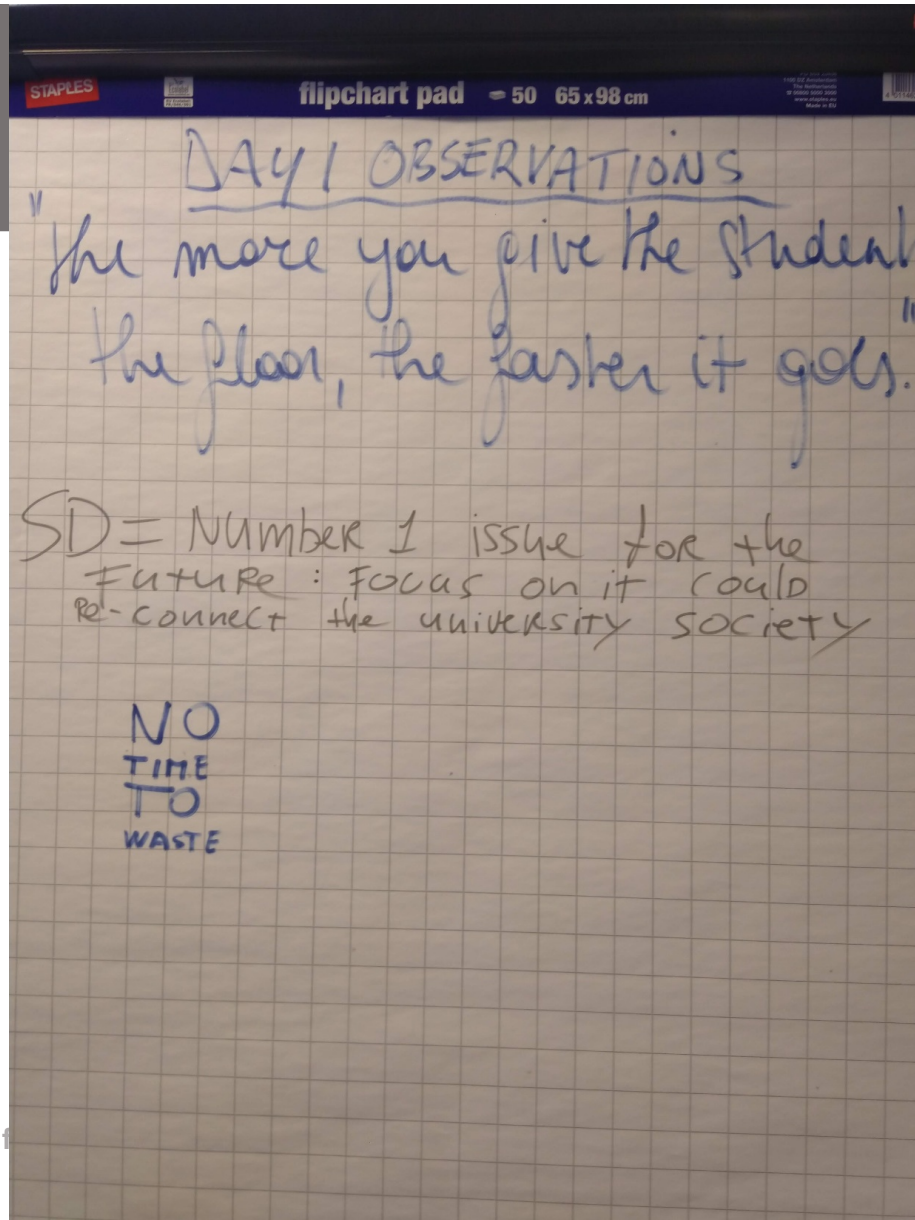 STAPLES
flipchart pad = 50 65 x 98 cm
The Netherlands
www.staples.eu
Made in EU
DAY 1 OBSERVATIONS
"the more you give the student
the floor, the faster it goes."
SD = Number 1 issue for the
Future : Focus on it could
Re-connect the university society
NO
TIME
TO
WASTE